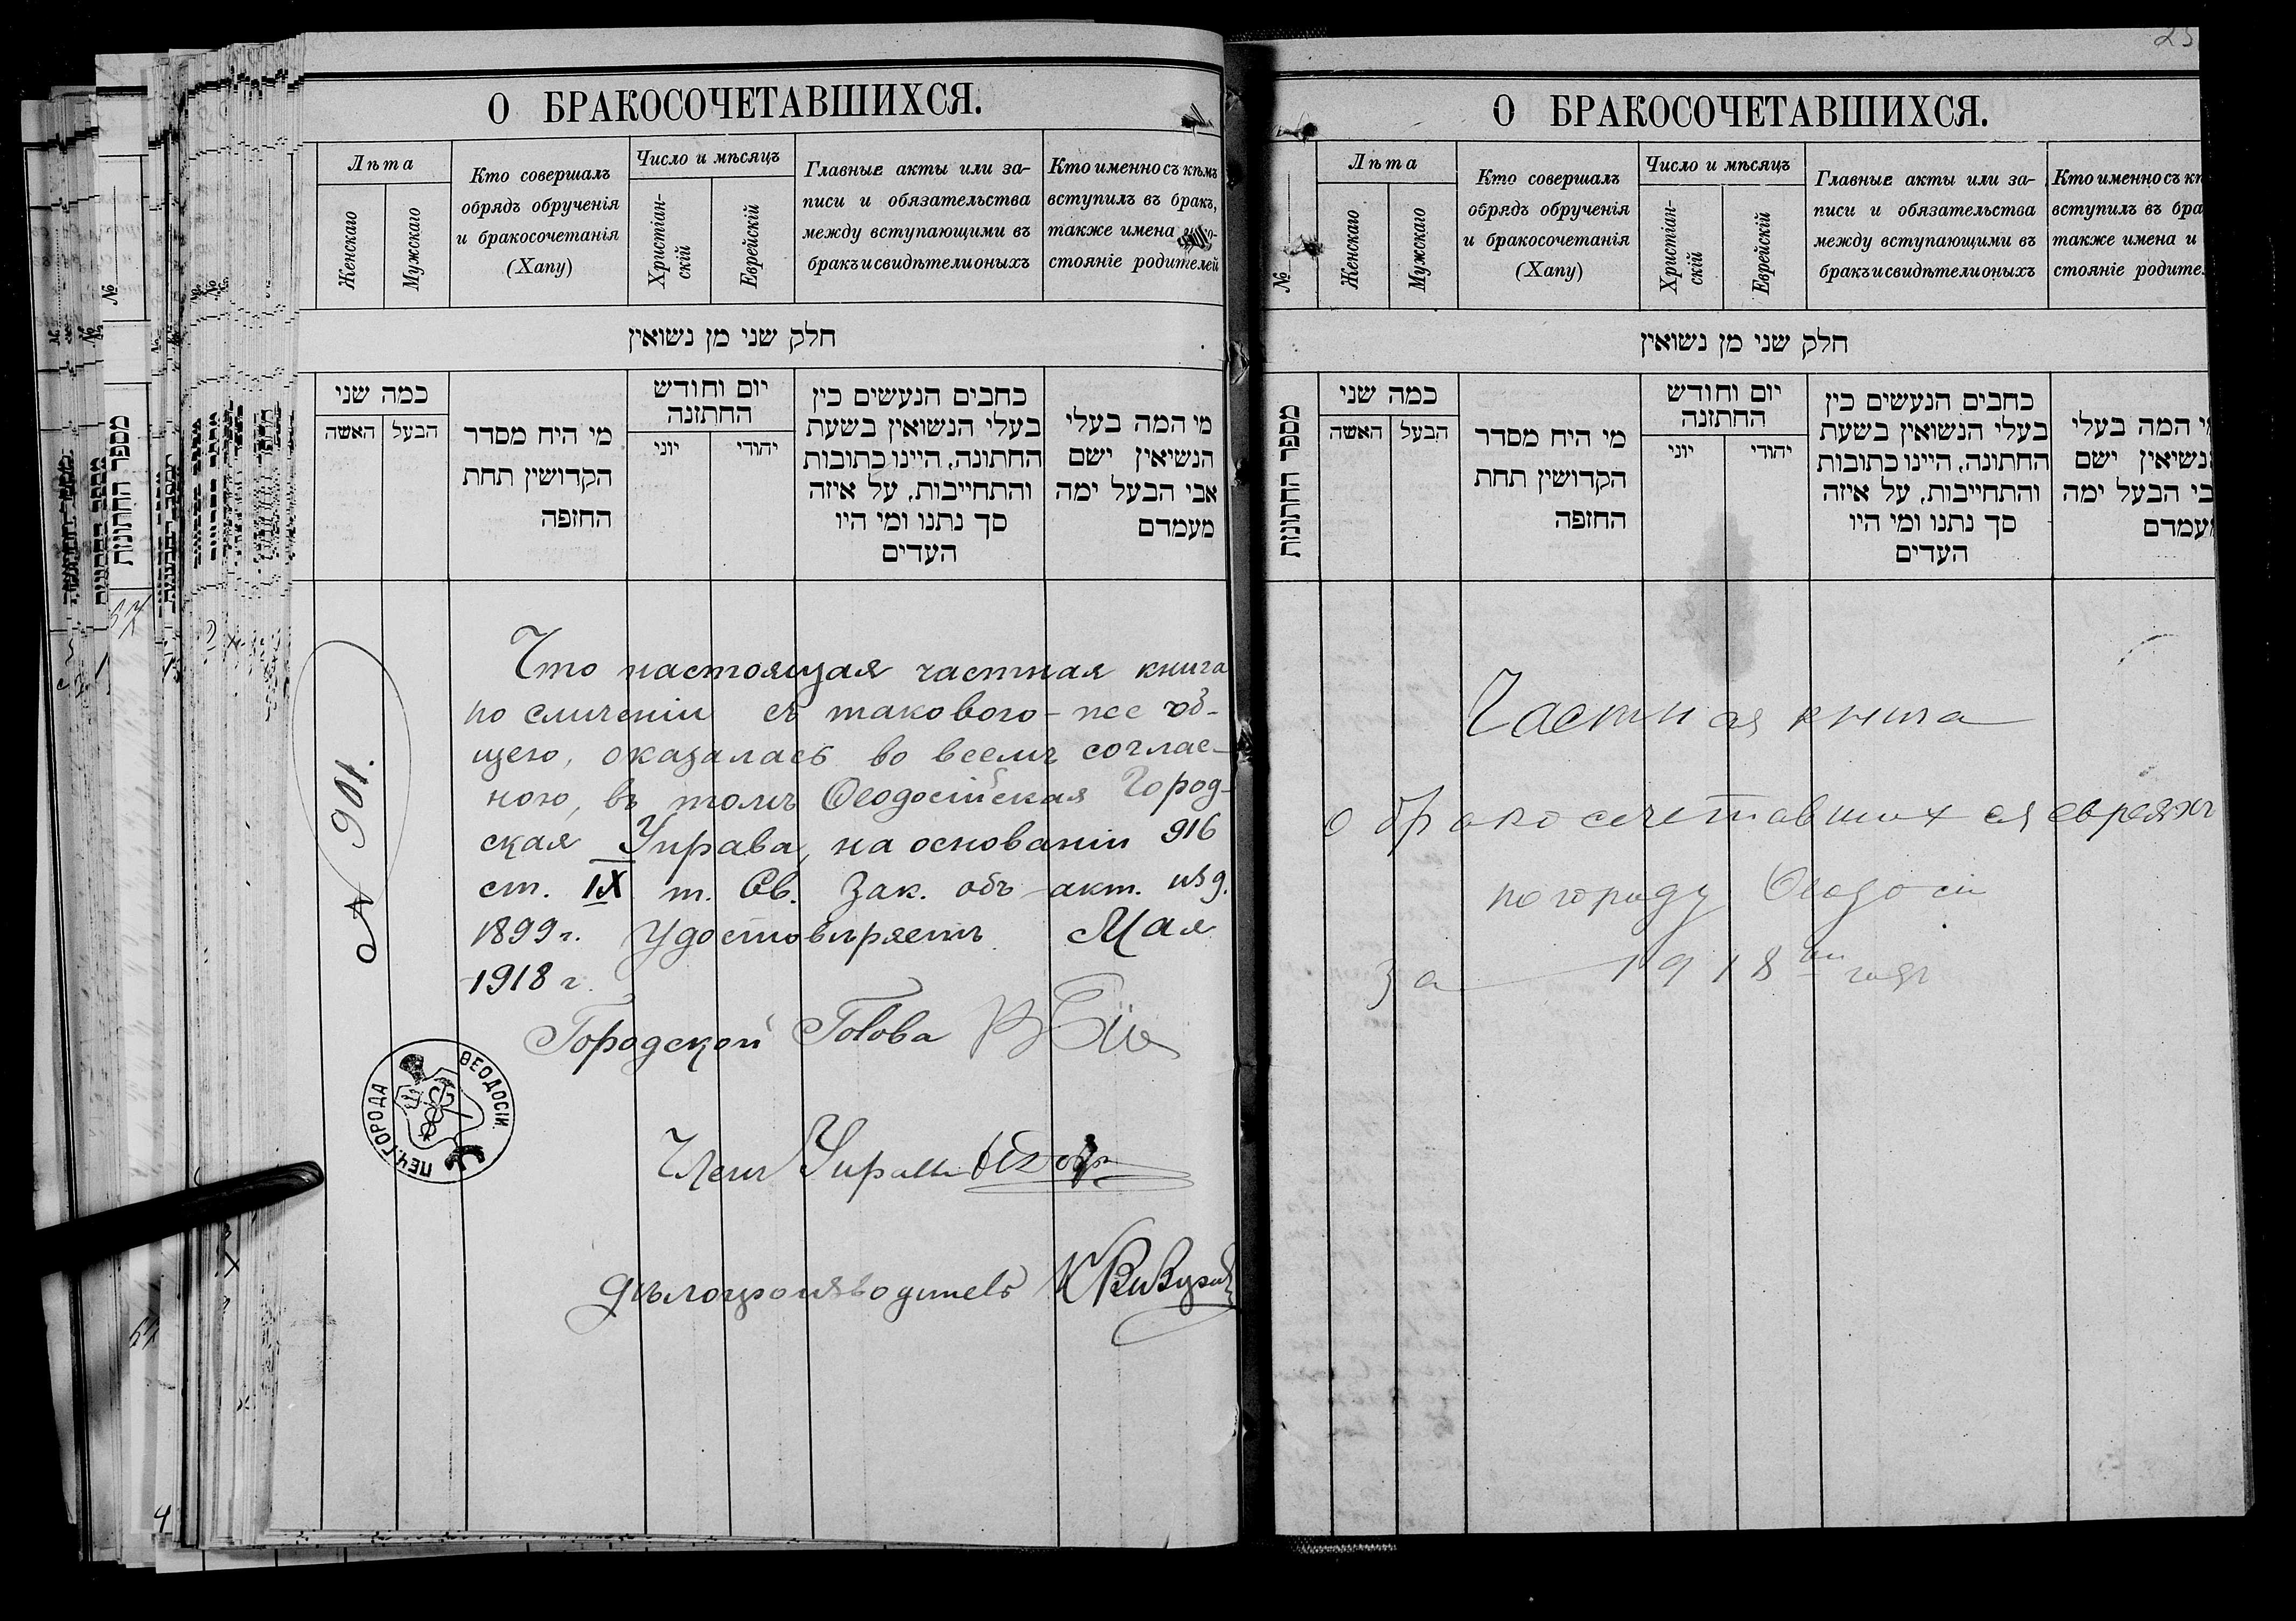 О БРАКОСОЧЕТАВШИХСЯ.
Лѣта
Женскаго
Мужскаго
Кто совершалъ
обрядъ обрученія
и бракосочетанія
(Хапу)
Число и мѣсяцъ
Христіан-
скій
Еврейскій
Главные акты или за-
писи и обязательства
между вступающими въ
бракъ и свидѣтели оныхъ
Кто именно съ кѣмъ
вступилъ въ бракъ,
также имена
стояніе родителей
חלק שני מן נשואין
כמה שני
האשה
הבעל
מי היח מסדר
הקדושין תחת
החזפה
יום וחודש
החתזנה
יוני
יהודי
כחבים הנעשים כין
בעלי הנשואין בשעת
החתונה, היינו כתובות
והתחייבות, על איזה
סך נתנו ומי היו
העדים
מי המה בעלי
הנשיאין ישם
אבי הבעל ימה
מעמדם
№ 901.
Что настоящая частная книга
по сличеніи съ такового-же об-
щего, оказалась во всемъ соглас-
ною, въ томъ Ѳеодосійская Город-
ская Управа, на основаніи 916
ст. IX т. Св. Зак. объ акт. изд.
1899 г. удостовѣряетъ Мая
1918 г.
Городской Голова
ПЕЧ. ГОРОДА ѲЕОДОСІИ.
Членъ Управы
Дѣлопроизводитель
25
О БРАКОСОЧЕТАВШИХСЯ.
№
Лѣта
Женскаго
Мужскаго
Кто совершалъ
обрядъ обрученія
и бракосочетанія
(Хапу)
Число и мѣсяцъ
Христіан-
скій
Еврейскій
Главные акты или за-
писи и обязательства
между вступающими въ
бракъ и свидѣтели оныхъ
Кто именно съ
вступилъ въ бра
также имена и
стояніе родите
חלק שני מן נשואין
מספר החתונות
כמה שני
האשה
הבעל
מי היח מסדר
הקדושין תחת
החזפה
יום וחודש
החתזנה
יוני
יהודי
כחבים הנעשים כין
בעלי הנשואין בשעת
החתונה, היינו כתובות
והתחייבות, על איזה
סך נתנו ומי היו
העדים
המה בעלי
נשיאין ישם
בי הבעל ימה
עמדם
Частная книга
о бракосочетавшихся евреяхъ
по городу Ѳеодосіи
за 1918ый годъ